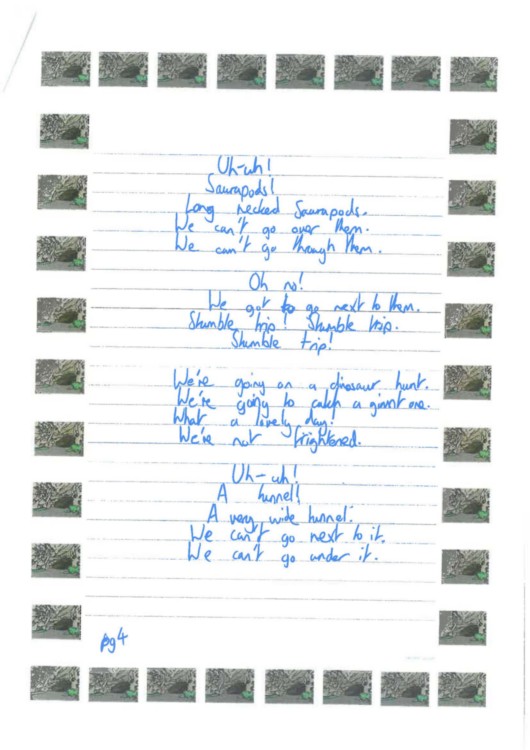 Uh-uh!
Saurapods!
Long necked Saurapods.
We can't go over them.
We can't go through them.
Oh no!
We got to go next to them.
Stumble trip! Stumble trip.
Stumble trip!
We're going on a dinosaur hunt.
We're going to catch a giant one.
What a lovely day!
We're not frightened.
Uh-uh!
A tunnel!
A very wide tunnel.
We can't go next to it.
We can't go under it.
pg4